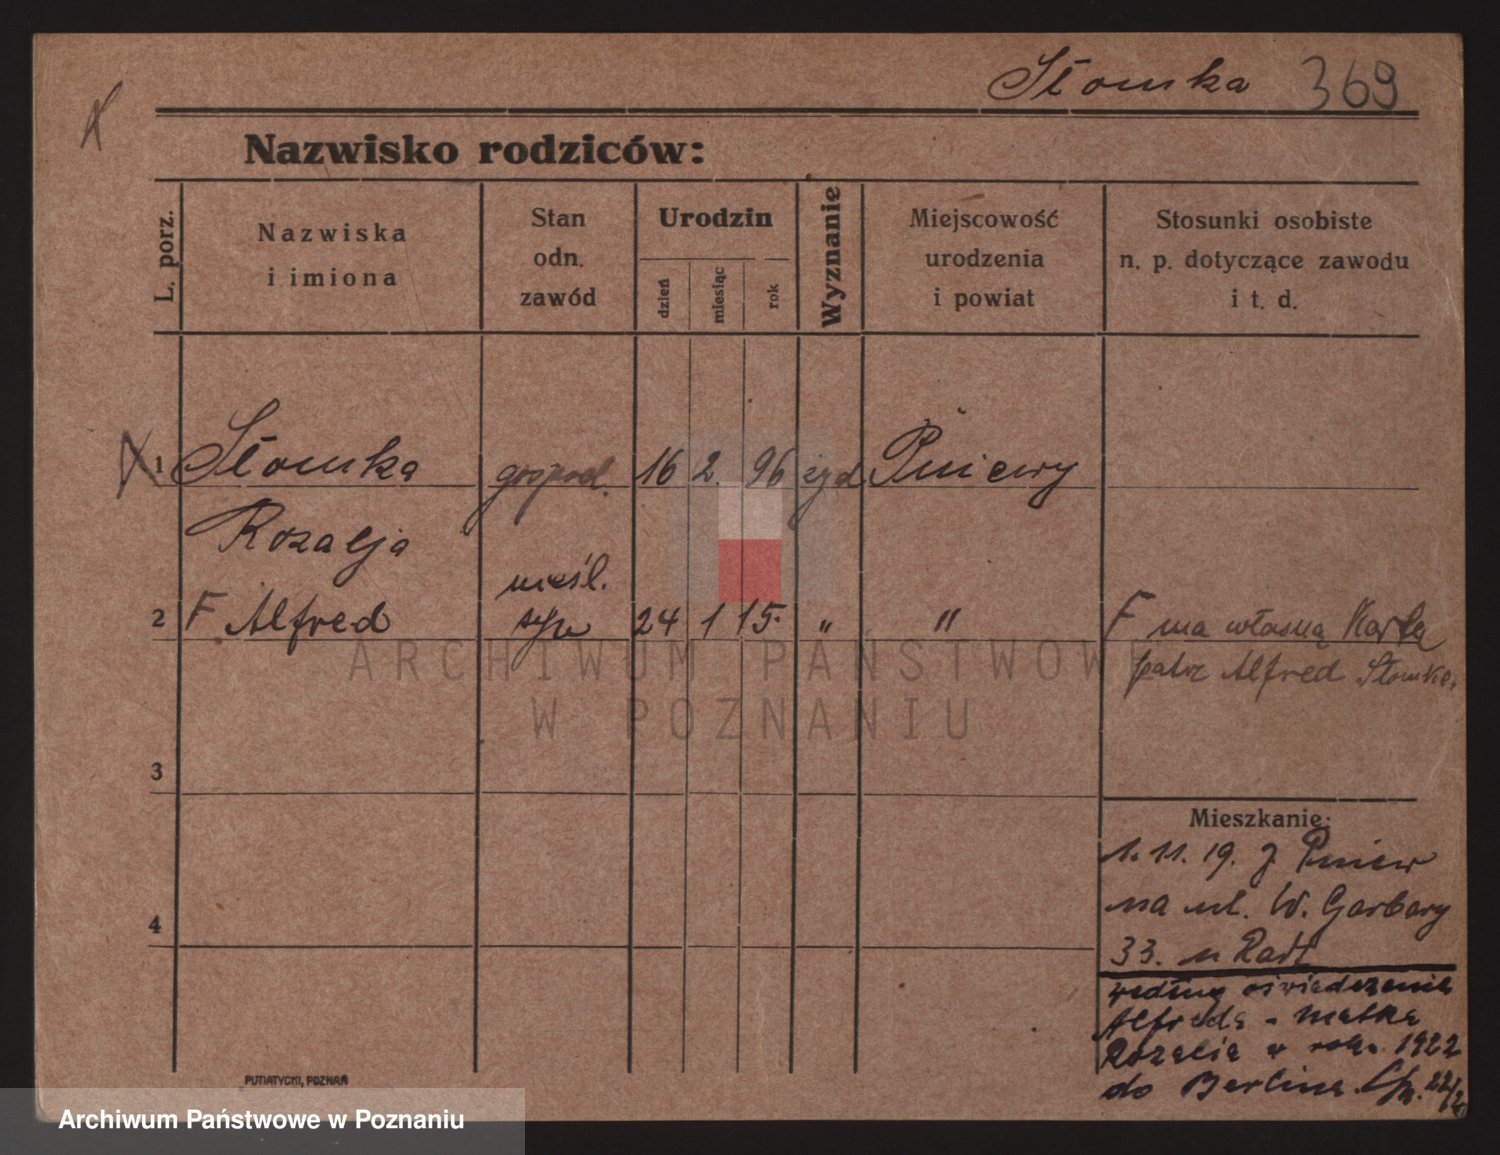 Słomka 369
Nazwisko rodziców:
L. porz.
Nazwiska
i imiona
Stan
odn.
zawód
Urodzin
dzień
miesiąc
rok
Wyznanie
Miejscowość
urodzenia
i powiat
Stosunki osobiste
n. p. dotyczące zawodu
i t. d.
X 1 Słomka gospod. 16 2. 96 żyd Pniewy
Rozalja
nieśl.
2 F Alfred syn 24 1 15. " " F ma własną Kartę
patrz Alfred Słomka.
ARCHIWUM PAŃSTWOWE
W POZNANIU
3
Mieszkanie:
1. 11. 19. z Pniew
na ul. W. Garbary
4
33. u Radt
według oświadczenia
Alfreda - matka
Rozalia w roku 1922
do Berlina.
PUTIATYCKI, POZNAŃ
Archiwum Państwowe w Poznaniu